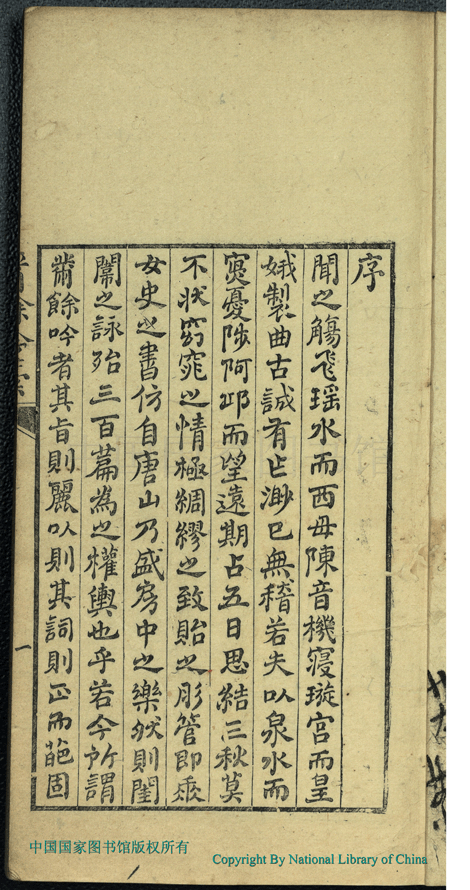 序
聞之觴飛瑶水而西母陳音機寢璇宮而皇
娥製曲古誠有之渺已無稽若夫以泉水而
寫憂陟阿邱而望遠期占五日思結三秋莫
不狀窈窕之情極綢繆之致貽之彤管即系
女史之書仿自唐山乃盛房中之樂然則閨
闈之詠殆三百篇為之權輿也乎若今所謂
繡餘吟者其旨則麗以則其詞則正而葩固
一
中国国家图书馆版权所有
Copyright By National Library of China